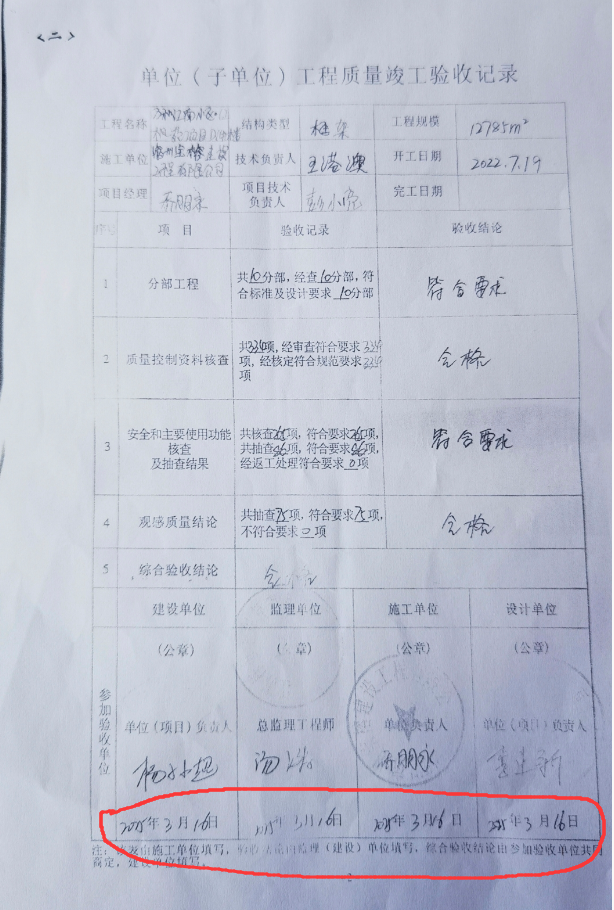 <二>
单位（子单位）工程质量竣工验收记录
工程名称
结构类型 框架 工程规模 12785m²
施工单位 技术负责人 王港澳 开工日期 2022.7.19
项目经理 乔朋永 项目技术负责人 完工日期
序号 项 目 验收记录 验收结论
1 分部工程
共10分部，经查10分部，符
合标准及设计要求 10分部
符合要求
2 质量控制资料核查
共 项，经审查符合要求
项，经核定符合规范要求
项
合格
3 安全和主要使用功能
核查
及抽查结果
共核查 项，符合要求 项，
共抽查 项，符合要求 项，
经返工处理符合要求 0 项
符合要求
4 观感质量结论
共抽查75项，符合要求75项，
不符合要求 0 项
合格
5 综合验收结论 合格
参加验收单位
建设单位 监理单位 施工单位 设计单位
（公章） （公章） （公章） （公章）
单位（项目）负责人 总监理工程师 单位负责人 单位（项目）负责人
乔朋永
2025年3月16日 2025年3月16日 2025年3月16日 2025年3月16日
注：该表由施工单位填写，验收结论由监理（建设）单位填写，综合验收结论由参加验收单位共同
商定，建设单位填写。